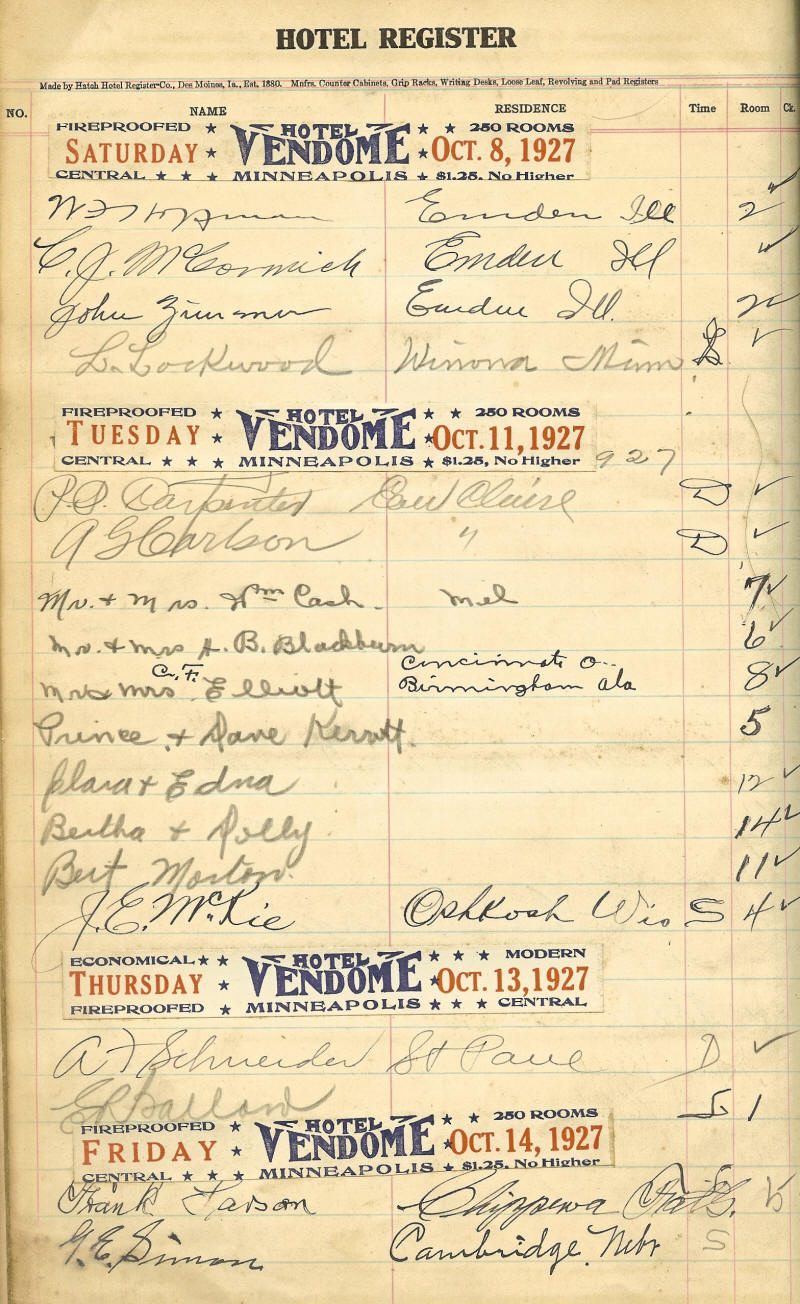 HOTEL REGISTER
Made by Hatch Hotel Register Co., Des Moines, Ia., Est. 1880. Mnfrs. Counter Cabinets, Grip Racks, Writing Desks, Loose Leaf, Revolving and Pad Registers
NO. NAME RESIDENCE Time Room Ck.
FIREPROOFED ★ HOTEL ★ ★ 250 ROOMS
SATURDAY ★ VENDOME ★ OCT. 8, 1927
CENTRAL ★ ★ ★ MINNEAPOLIS ★ $1.25, No Higher
Emden Ill 2
C. J. McCormick Emden Ill "
John Zimmer Emden Ill. 2
L. Lockwood Winona Minn
FIREPROOFED ★ HOTEL ★ ★ 250 ROOMS
TUESDAY ★ VENDOME ★ OCT. 11, 1927
CENTRAL ★ ★ ★ MINNEAPOLIS ★ $1.25, No Higher 927
P.D. Carpenter Eau Claire D ✓
A G Carlson " D ✓
Mr. & Mrs. Wm Cash. 7 ✓
Mr. & Mrs A. B. Blackburn 6 ✓
Cincinnati O.
Mr & Mrs C. F. Elliott Birmingham Ala 8 ✓
Prince & Dave 5
Clara & Edna 12 ✓
Bertha & Dolly 14 ✓
Bert Morton. 11 ✓
J. E. McKie Oshkosh Wis S 4 ✓
ECONOMICAL ★ ★ HOTEL ★ ★ ★ MODERN
THURSDAY ★ VENDOME ★ OCT. 13, 1927
FIREPROOFED ★ MINNEAPOLIS ★ ★ ★ CENTRAL
A F Schneider St Paul D ✓
1
FIREPROOFED ★ HOTEL ★ ★ 250 ROOMS
FRIDAY ★ VENDOME ★ OCT. 14, 1927
CENTRAL ★ ★ ★ MINNEAPOLIS ★ $1.25, No Higher
Frank Larson Chippewa Falls.
G. E. Simon Cambridge, Nebr S